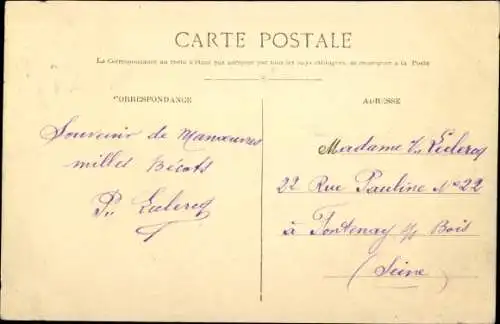 CARTE POSTALE
La Correspondance au recto n'étant pas acceptée par tous les pays étrangers, se renseigner à la Poste
CORRESPONDANCE
ADRESSE
Souvenir de Manœuvres
milles Bécots
P. Leclercq
Madame Leclercq
22 Rue Pauline N° 22
à Fontenay s/s Bois
(Seine)